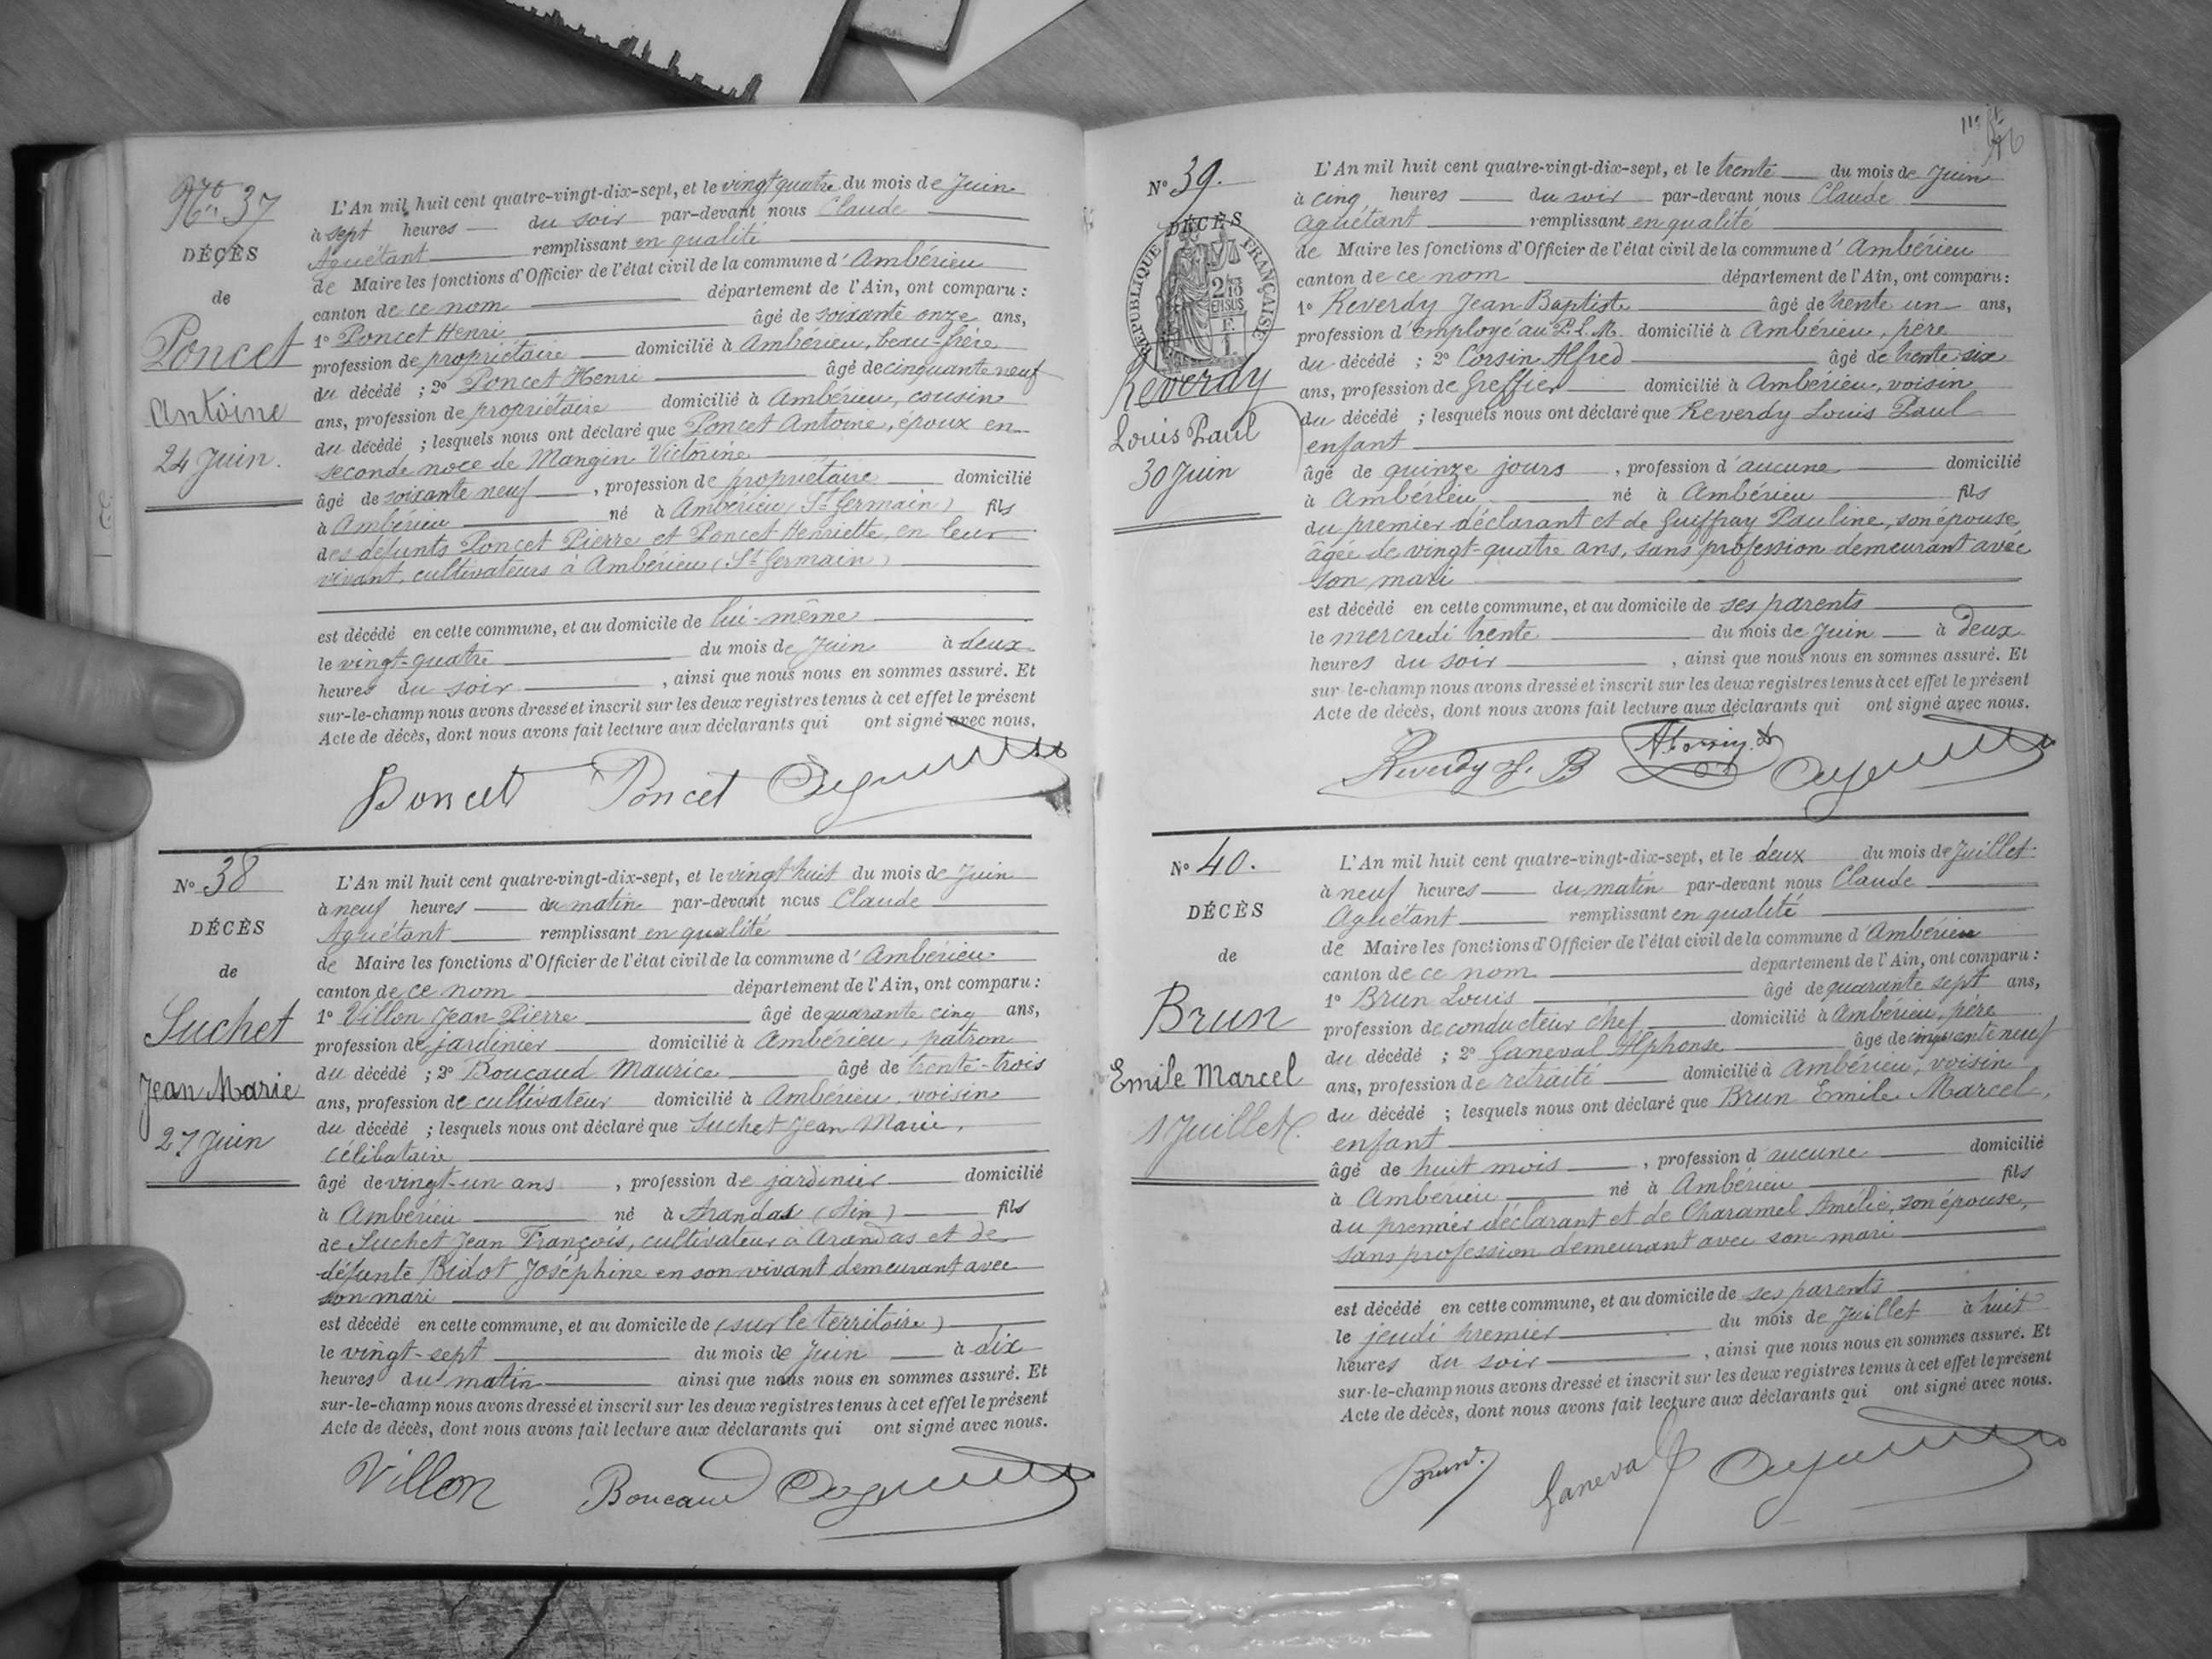 No 37
DÉCÈS
de
Poncet
Antoine
24 Juin.
L'An mil huit cent quatre-vingt-dix-sept, et le vingt quatre du mois de Juin
à sept heures du soir par-devant nous Claude
Aguétant remplissant en qualité
de Maire les fonctions d'Officier de l'état civil de la commune d'Ambérieu
canton de ce nom département de l'Ain, ont comparu :
1° Poncet Henri âgé de soixante onze ans,
profession de propriétaire domicilié à Ambérieu, beau-frère
du décédé ; 2° Poncet Henri âgé de cinquante neuf
ans, profession de propriétaire domicilié à Ambérieu, cousin
du décédé ; lesquels nous ont déclaré que Poncet Antoine, époux en
seconde noce de Mangin Victorine
âgé de soixante neuf , profession de propriétaire domicilié
à Ambérieu né à Ambérieu (St Germain) fils
des défunts Poncet Pierre et Poncet Henriette, en leur
vivant, cultivateurs à Ambérieu (St Germain)
est décédé en cette commune, et au domicile de lui-même
le vingt-quatre du mois de Juin à deux
heures du soir , ainsi que nous nous en sommes assuré. Et
sur-le-champ nous avons dressé et inscrit sur les deux registres tenus à cet effet le présent
Acte de décès, dont nous avons fait lecture aux déclarants qui ont signé avec nous.
Poncet Poncet Aguétant
No 38
DÉCÈS
de
Suchet
Jean Marie
27 Juin
L'An mil huit cent quatre-vingt-dix-sept, et le vingt huit du mois de Juin
à neuf heures du matin par-devant nous Claude
Aguétant remplissant en qualité
de Maire les fonctions d'Officier de l'état civil de la commune d'Ambérieu
canton de ce nom département de l'Ain, ont comparu :
1° Villon Jean-Pierre âgé de quarante cinq ans,
profession de jardinier domicilié à Ambérieu, patron
du décédé ; 2° Boucaud Maurice âgé de trente-trois
ans, profession de cultivateur domicilié à Ambérieu, voisin
du décédé ; lesquels nous ont déclaré que Suchet Jean Marie,
célibataire
âgé de vingt-un ans , profession de jardinier domicilié
à Ambérieu né à Arandas (Ain) fils
de Suchet Jean François, cultivateur à Arandas et de
défunte Bidot Joséphine en son vivant demeurant avec
son mari
est décédé en cette commune, et au domicile de (sur le territoire)
le vingt-sept du mois de Juin à dix
heures du matin ainsi que nous nous en sommes assuré. Et
sur-le-champ nous avons dressé et inscrit sur les deux registres tenus à cet effet le présent
Acte de décès, dont nous avons fait lecture aux déclarants qui ont signé avec nous.
Villon Boucaud Aguétant
No 39.
DÉCÈS
RÉPUBLIQUE FRANÇAISE
2/10
EN SUS
Reverdy
Louis Paul
30 Juin
L'An mil huit cent quatre-vingt-dix-sept, et le trente du mois de Juin
à cinq heures du soir par-devant nous Claude
Aguétant remplissant en qualité
de Maire les fonctions d'Officier de l'état civil de la commune d'Ambérieu
canton de ce nom département de l'Ain, ont comparu :
1° Reverdy Jean Baptiste âgé de trente un ans,
profession d'employé au P.L.M. domicilié à Ambérieu, père
du décédé ; 2° Corsin Alfred âgé de trente six
ans, profession de Greffier domicilié à Ambérieu, voisin
du décédé ; lesquels nous ont déclaré que Reverdy Louis Paul
enfant
âgé de quinze jours , profession d'aucune domicilié
à Ambérieu né à Ambérieu fils
du premier déclarant et de Guiffray Pauline, son épouse,
âgée de vingt-quatre ans, sans profession demeurant avec
son mari
est décédé en cette commune, et au domicile de ses parents
le mercredi trente du mois de Juin à deux
heures du soir , ainsi que nous nous en sommes assuré. Et
sur-le-champ nous avons dressé et inscrit sur les deux registres tenus à cet effet le présent
Acte de décès, dont nous avons fait lecture aux déclarants qui ont signé avec nous.
Reverdy J. B A. Corsin Aguétant
No 40.
DÉCÈS
de
Brun
Emile Marcel
1 Juillet.
L'An mil huit cent quatre-vingt-dix-sept, et le deux du mois de Juillet
à neuf heures du matin par-devant nous Claude
Aguétant remplissant en qualité
de Maire les fonctions d'Officier de l'état civil de la commune d'Ambérieu
canton de ce nom département de l'Ain, ont comparu :
1° Brun Louis âgé de quarante sept ans,
profession de conducteur chef domicilié à Ambérieu, père
du décédé ; 2° Ganeval Alphonse âgé de cinquante neuf
ans, profession de retraité domicilié à Ambérieu, voisin
du décédé ; lesquels nous ont déclaré que Brun Emile Marcel,
enfant
âgé de huit mois , profession d'aucune domicilié
à Ambérieu né à Ambérieu fils
du premier déclarant et de Charamel Amélie, son épouse,
sans profession demeurant avec son mari
est décédé en cette commune, et au domicile de ses parents
le jeudi premier du mois de Juillet à huit
heures du soir , ainsi que nous nous en sommes assuré. Et
sur-le-champ nous avons dressé et inscrit sur les deux registres tenus à cet effet le présent
Acte de décès, dont nous avons fait lecture aux déclarants qui ont signé avec nous.
Brun Ganeval Aguétant